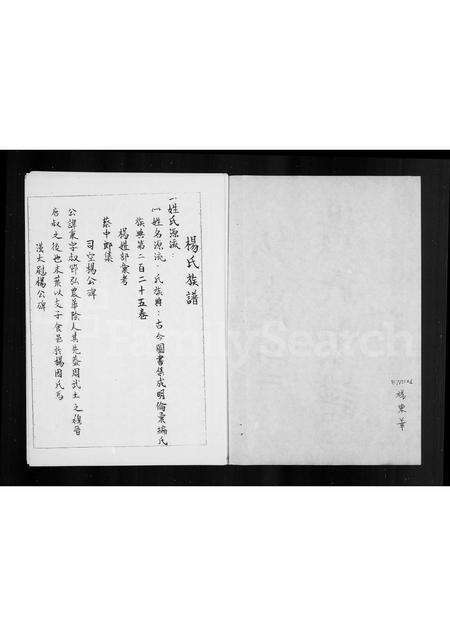 楊氏族譜
一 姓氏源流:
以姓名源流·氏族典:古今圖書集成明倫彙編氏
族典第二百二十五卷
楊姓部彙考
蔡中郎集
司空楊公碑
公諱秉字叔節弘農華陰人其先蓋周武王之穆晉
唐叔之後也末葉以支子食邑於楊因氏焉
漢太尉楊公碑
楊東華
FamilySearch